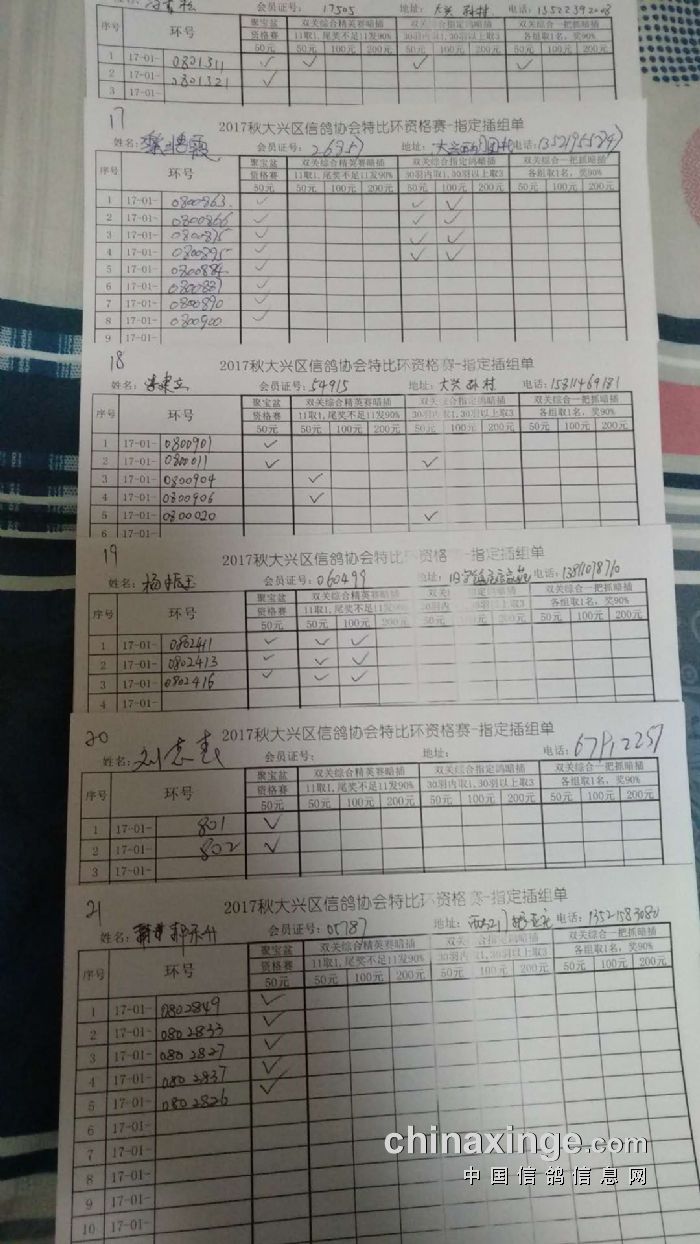 会员证号: 17505 地址: 大兴 孙村 电话: 13522392008
序号 环号 聚宝盆 双关综合精英赛暗插 双关综合指定鸽暗插 双关综合一把抓暗插
资格赛 11取1,尾奖不足11发90% 30羽内取1,30羽以上取3 各组取1名,奖90%
50元 50元 100元 200元 50元 100元 200元 50元 100元 200元
1 17-01- 0801311 ✓ ✓ ✓ ✓
2 17-01- 0801321 ✓
3 17-01-
17 2017秋大兴区信鸽协会特比环资格赛-指定插组单
姓名: 会员证号: 26957 地址: 电话:
序号 环号 聚宝盆 双关综合精英赛暗插 双关综合指定鸽暗插 双关综合一把抓暗插
资格赛 11取1,尾奖不足11发90% 30羽内取1,30羽以上取3 各组取1名,奖90%
50元 50元 100元 200元 50元 100元 200元 50元 100元 200元
1 17-01- 0800863 ✓ ✓ ✓
2 17-01- 0800866 ✓ ✓ ✓
3 17-01- 0800875 ✓ ✓ ✓
4 17-01- 0800895 ✓ ✓ ✓
5 17-01- 0800884 ✓
6 17-01- 0800881 ✓
7 17-01- 0800890 ✓
8 17-01- 0800900 ✓
9 17-01-
18 2017秋大兴区信鸽协会特比环资格赛-指定插组单
姓名: 会员证号: 54915 地址: 大兴 孙村 电话: 15811469181
序号 环号 聚宝盆 双关综合精英赛暗插 双关综合指定鸽暗插 双关综合一把抓暗插
资格赛 11取1,尾奖不足11发90% 30羽内取1,30羽以上取3 各组取1名,奖90%
50元 50元 100元 200元 50元 100元 200元 50元 100元 200元
1 17-01- 0800901 ✓
2 17-01- 0800011 ✓ ✓
3 17-01- 0800904 ✓
4 17-01- 0800906 ✓
5 17-01- 0800020 ✓
6 17-01-
19 2017秋大兴区信鸽协会特比环资格赛-指定插组单
姓名: 杨振玉 会员证号: 060499 地址: 电话: 13811018710
序号 环号 聚宝盆 双关综合精英赛暗插 双关综合指定鸽暗插 双关综合一把抓暗插
资格赛 11取1,尾奖不足11发90% 30羽内取1,30羽以上取3 各组取1名,奖90%
50元 50元 100元 200元 50元 100元 200元 50元 100元 200元
1 17-01- 0802411 ✓ ✓ ✓
2 17-01- 0802413 ✓ ✓ ✓
3 17-01- 0802416 ✓ ✓ ✓
4 17-01-
20 2017秋大兴区信鸽协会特比环资格赛-指定插组单
姓名: 刘志表 会员证号: 地址: 电话:
序号 环号 聚宝盆 双关综合精英赛暗插 双关综合指定鸽暗插 双关综合一把抓暗插
资格赛 11取1,尾奖不足11发90% 30羽内取1,30羽以上取3 各组取1名,奖90%
50元 50元 100元 200元 50元 100元 200元 50元 100元 200元
1 17-01- 801 ✓
2 17-01- 802 ✓
3 17-01-
21 2017秋大兴区信鸽协会特比环资格赛-指定插组单
姓名: 会员证号: 05787 地址: 电话: 13521583080
序号 环号 聚宝盆 双关综合精英赛暗插 双关综合指定鸽暗插 双关综合一把抓暗插
资格赛 11取1,尾奖不足11发90% 30羽内取1,30羽以上取3 各组取1名,奖90%
50元 50元 100元 200元 50元 100元 200元 50元 100元 200元
1 17-01- 0802849 ✓
2 17-01- 0802833 ✓
3 17-01- 0802827 ✓
4 17-01- 0802837 ✓
5 17-01- 0802826 ✓
6 17-01-
7 17-01-
8 17-01-
9 17-01-
10 17-01-
chinaxinge.com
中国信鸽信息网